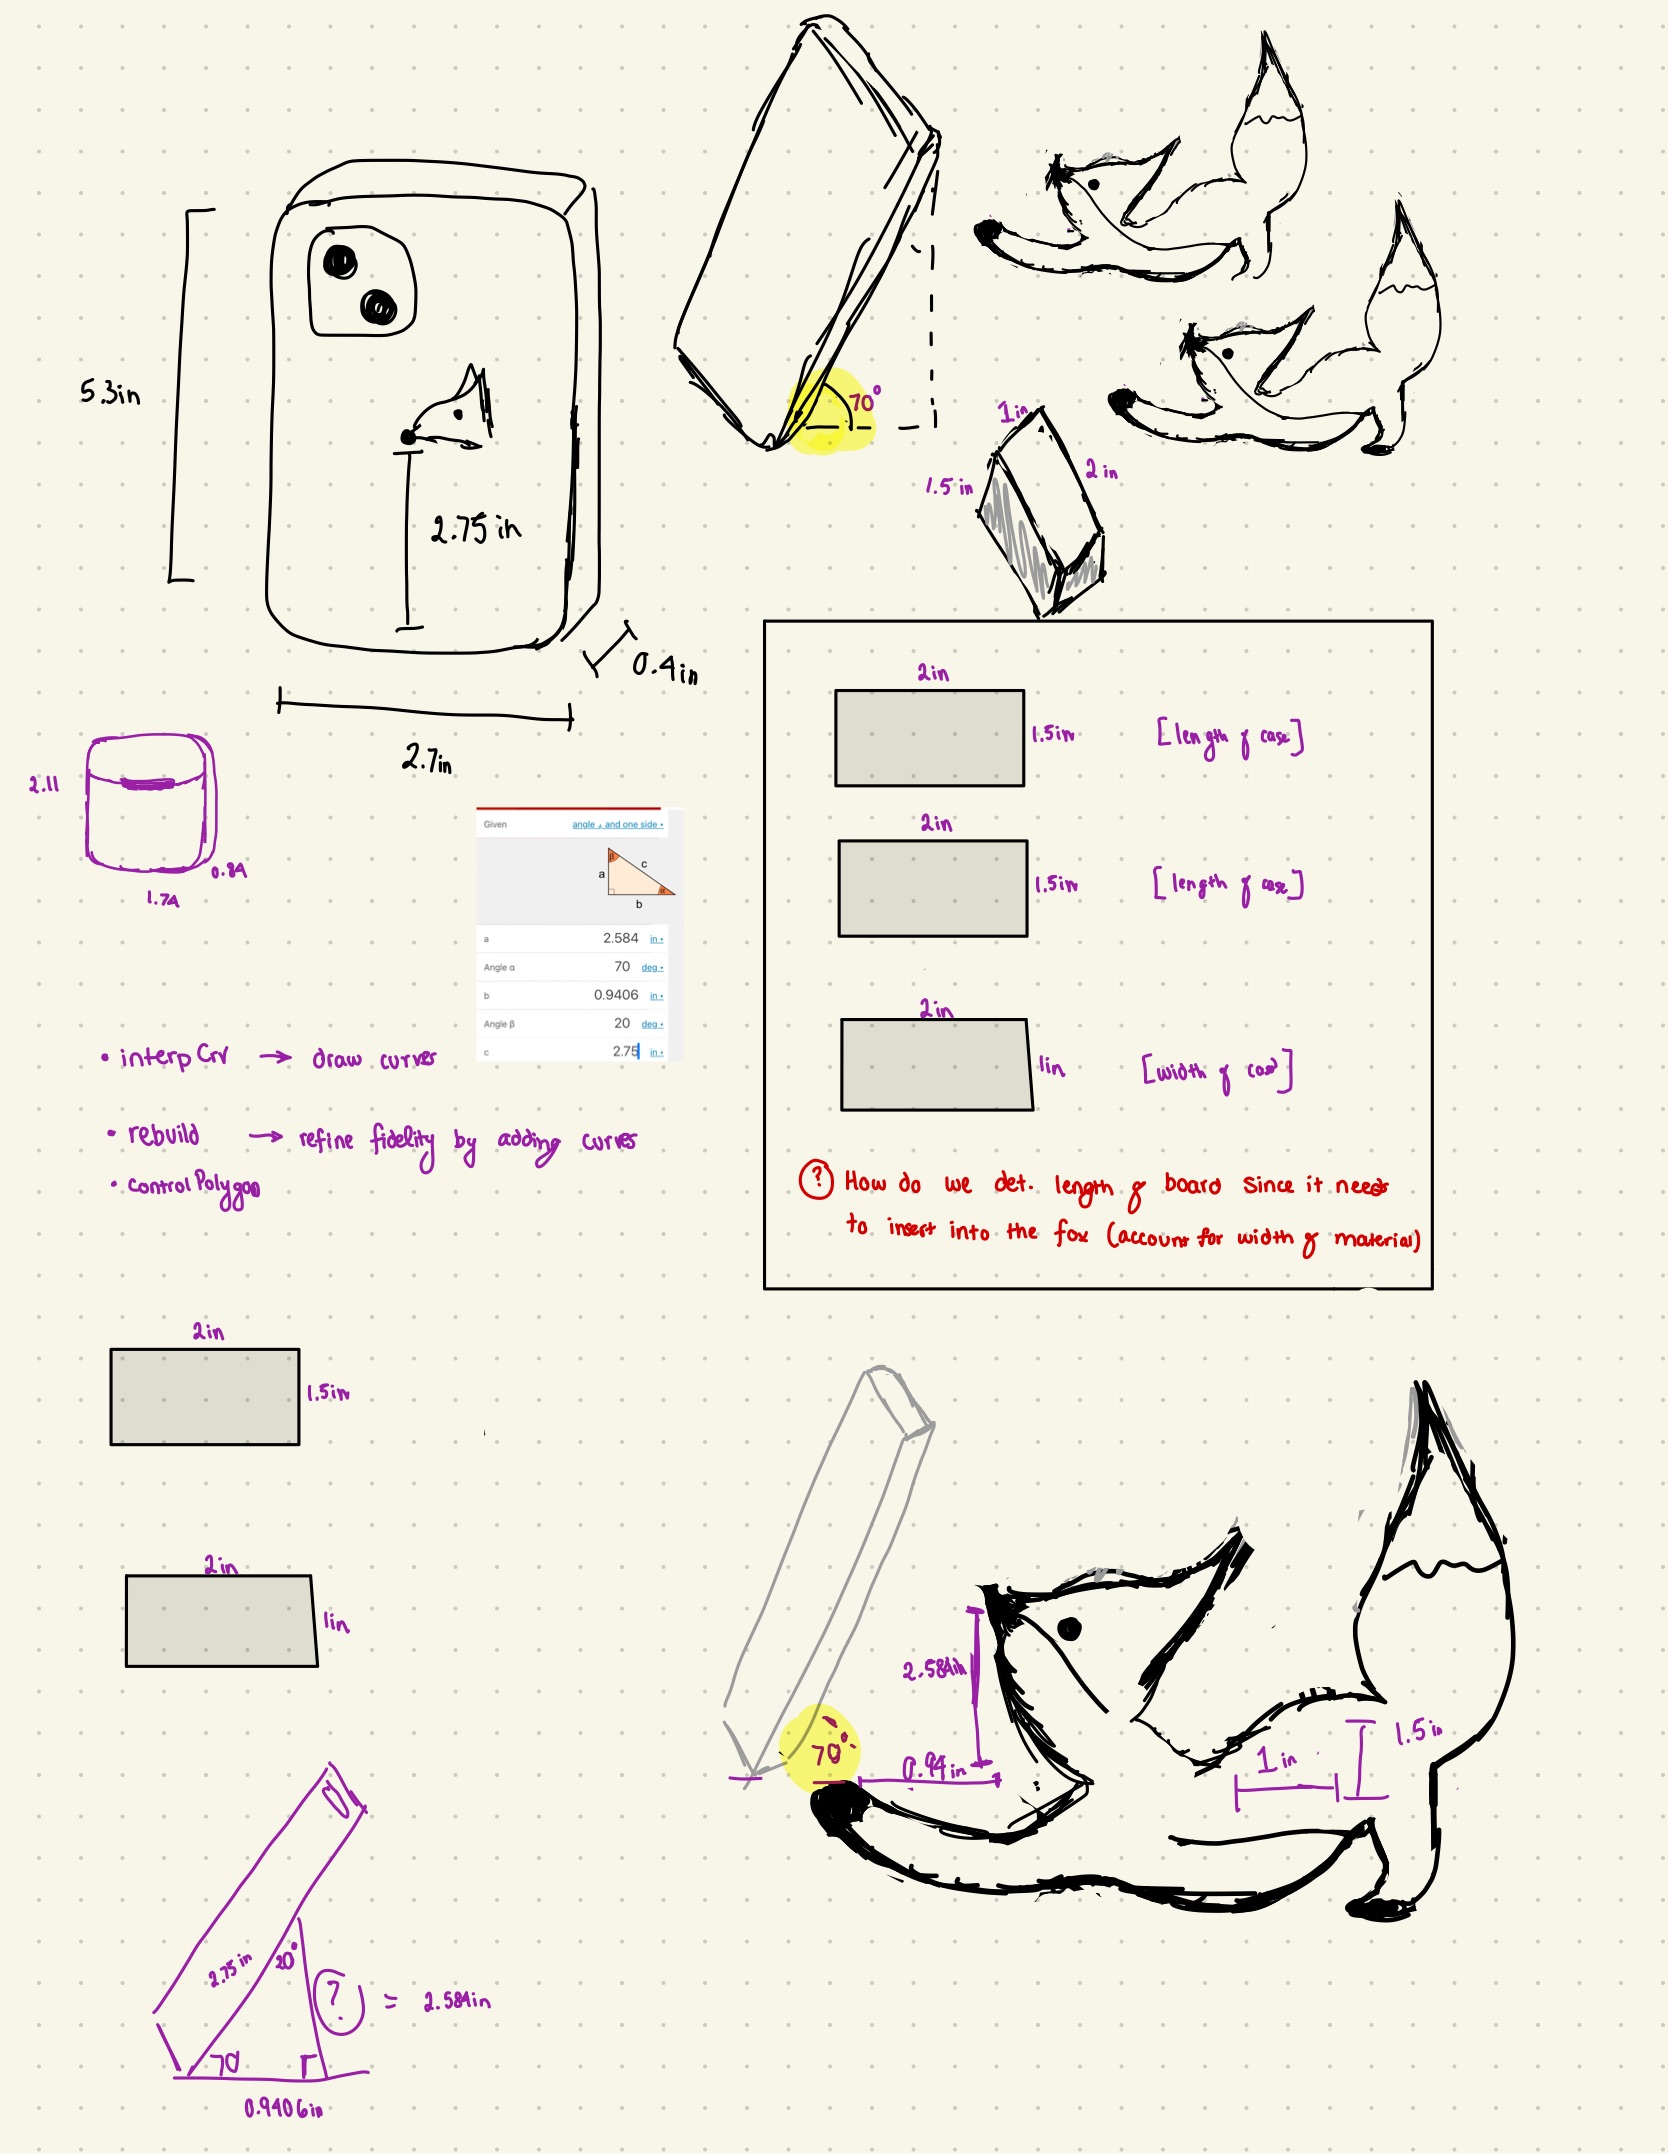 5.3in
2.75 in
0.4in
2.7in
70°
1in
2 in
1.5 in
2.11
0.84
1.74
Given
angle ⦟ and one side
β
c
a
α
b
a 2.584 in
Angle α 70 deg
b 0.9406 in
Angle β 20 deg
c 2.75 in
• interpCrv → draw curves
• rebuild → refine fidelity by adding curves
• controlPolygon
2in
1.5in [length of case]
2in
1.5in [length of case]
2in
1in [width of case]
? How do we det. length of board since it needs
to insert into the fox (account for width of material)
2in
1.5in
2in
1in
2.584in
70°
0.94in
1 in
1.5 in
2.75 in
20°
? = 2.584in
70
0.9406in